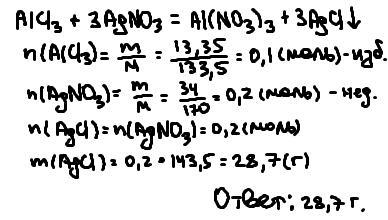 AlCl₃ + 3AgNO₃ = Al(NO₃)₃ + 3AgCl↓
n(AlCl₃) = m/M = 13,35/133,5 = 0,1 (моль) - изб.
n(AgNO₃) = m/M = 34/170 = 0,2 (моль) - нед.
n(AgCl) = n(AgNO₃) = 0,2 (моль)
m(AgCl) = 0,2 • 143,5 = 28,7 (г)
Ответ: 28,7 г.